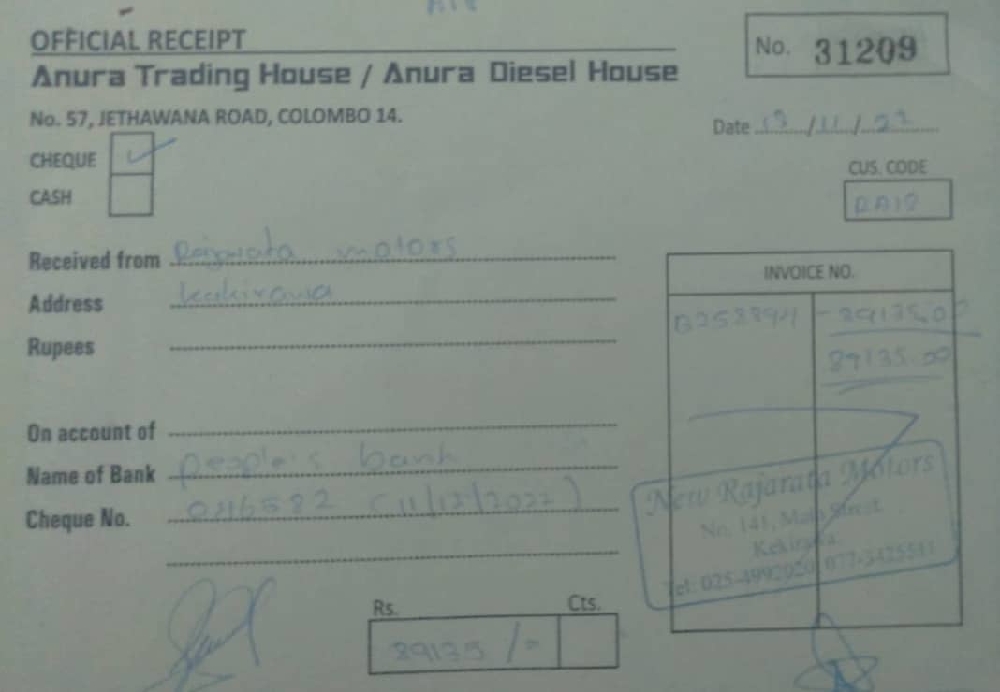 OFFICIAL RECEIPT
No. 31209
Anura Trading House / Anura Diesel House
No. 57, JETHAWANA ROAD, COLOMBO 14.
Date /11/22
CHEQUE ✓
CUS. CODE
CASH
RA18
Received from Rajarata motors
INVOICE NO.
Address kekirawa
B258894 - 89135.00
Rupees
89135.00
On account of
Name of Bank people's bank
Cheque No. 046582 (11/12/2022)
New Rajarata Motors
No. 141, Main Street,
Kekirawa.
Tel: 025-4992020, 077-3425541
Rs. Cts.
89135 /=